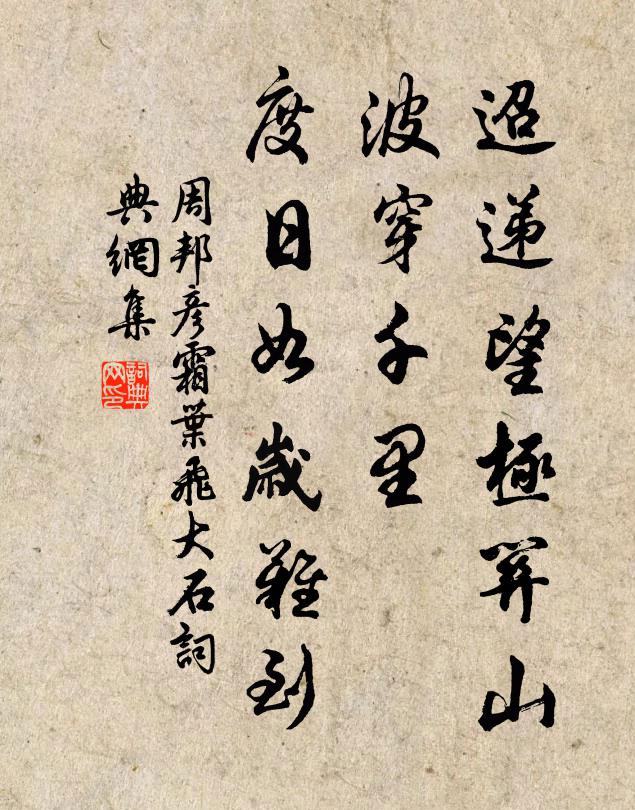 迢递望極関山
波穿千里
度日如歲難到
周邦彦霜葉飛大石詞
典網集
詞典
网印